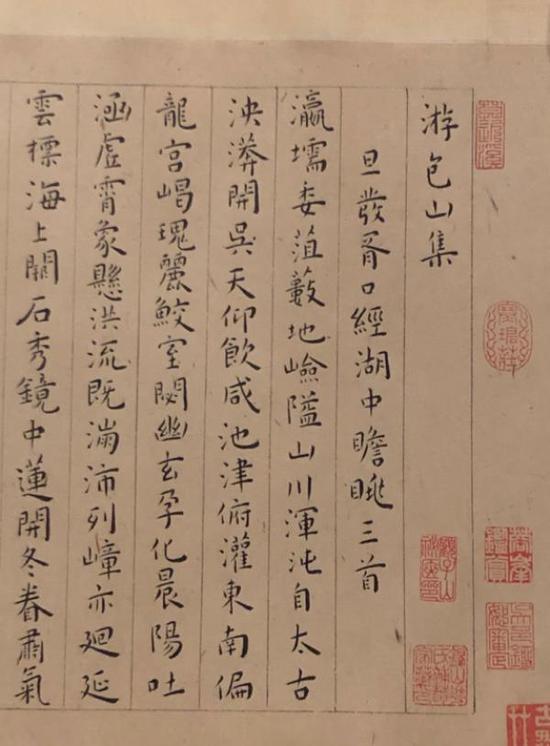 游包山集
旦發胥口經湖中瞻眺三首
瀛壖委菹藪地嶮隘山川渾沌自太古
泱漭開吳天仰飲咸池津俯灌東南偏
龍宮嵑瑰麗鮫室閟幽玄孕化晨陽吐
涵虛霄象懸洪流既滿沛列嶂亦廻延
雲標海上關石秀鏡中蓮開冬眷肅氣